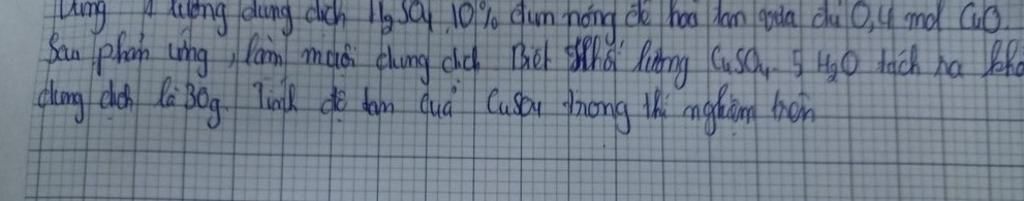 Dùng 1 lượng dung dịch H2SO4 10% đun nóng để hoà tan vừa đủ 0,4 mol CuO.
Sau phản ứng, làm nguội dung dịch Biết khối lượng CuSO4. 5 H2O tách ra khỏ
dung dịch là 30g. Tính độ tan của CuSO4 trong thí nghiệm trên